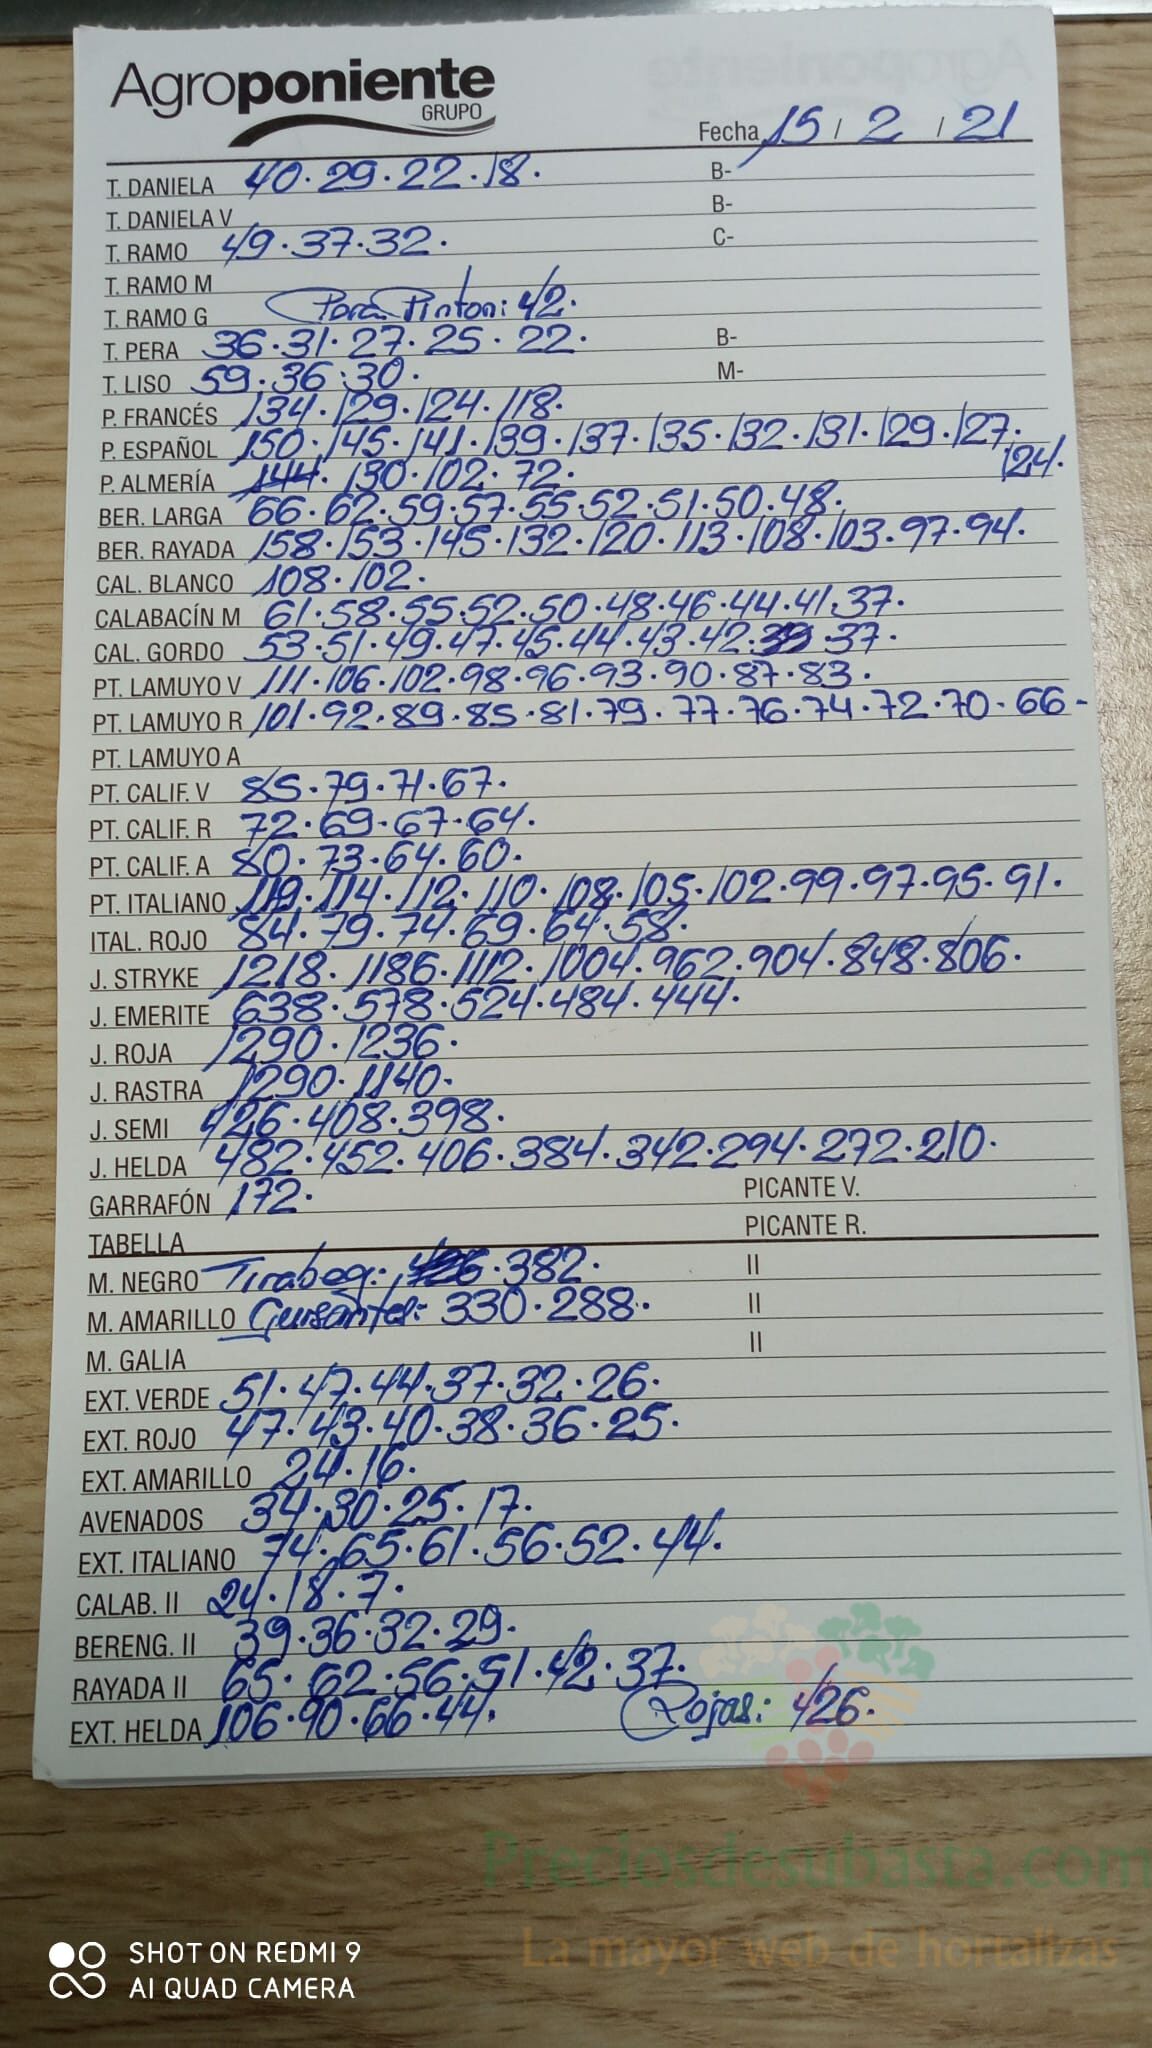 Agroponiente
GRUPO
Fecha 15 / 2 / 21
T. DANIELA 40.29.22.18. B-
T. DANIELA V B-
T. RAMO 49.37.32. C-
T. RAMO M
T. RAMO G Pera Pinton: 42.
T. PERA 36.31.27.25.22. B-
T. LISO 59.36.30. M-
P. FRANCÉS 134.129.124.118.
P. ESPAÑOL 150.145.141.139.137.135.132.131.129.127.
124.
P. ALMERÍA 144.130.102.72.
BER. LARGA 66.62.59.57.55.52.51.50.48.
BER. RAYADA 158.153.145.132.120.113.108.103.97.94.
CAL. BLANCO 108.102.
CALABACÍN M 61.58.55.52.50.48.46.44.41.37.
CAL. GORDO 53.51.49.47.45.44.43.42.39.37.
PT. LAMUYO V 111.106.102.98.96.93.90.87.83.
PT. LAMUYO R 101.92.89.85.81.79.77.76.74.72.70.66-
PT. LAMUYO A
PT. CALIF. V 85.79.71.67.
PT. CALIF. R 72.69.67.64.
PT. CALIF. A 80.73.64.60.
PT. ITALIANO 119.114.112.110.108.105.102.99.97.95.91.
ITAL. ROJO 84.79.74.69.64.58.
J. STRYKE 1218.1186.1112.1004.962.904.848.806.
J. EMERITE 638.578.524.484.444.
J. ROJA 1290.1236.
J. RASTRA 1290.1140.
J. SEMI 426.408.398.
J. HELDA 482.452.406.384.342.294.272.210.
GARRAFÓN 172. PICANTE V.
TABELLA PICANTE R.
M. NEGRO Tirabeq: .382. II
M. AMARILLO Guisantes: 330.288. II
M. GALIA II
EXT. VERDE 51.47.44.37.32.26.
EXT. ROJO 47.43.40.38.36.25.
EXT. AMARILLO 24.16.
AVENADOS 34.30.25.17.
EXT. ITALIANO 74.65.61.56.52.44.
CALAB. II 24.18.7.
BERENG. II 39.36.32.29.
RAYADA II 65.62.56.51.42.37.
EXT. HELDA 106.90.66.44. Rojas: 426.
Preciosdesubasta.com
La mayor web de hortalizas
SHOT ON REDMI 9
AI QUAD CAMERA